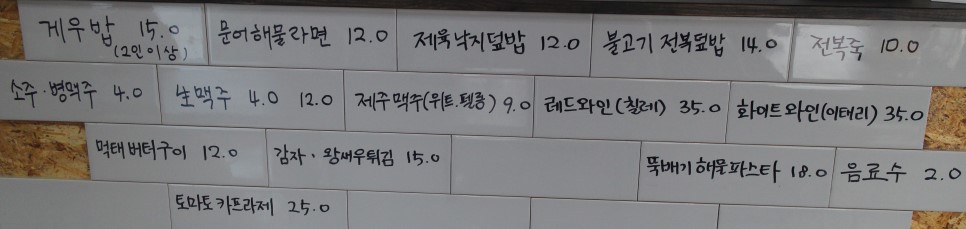 게우밥 15.0
(2인이상)
문어해물라면 12.0
제육낙지덮밥 12.0
불고기 전복덮밥 14.0
전복죽 10.0
소주·병맥주 4.0
생맥주 4.0 12.0
제주맥주(위트.펠롱) 9.0
레드와인(칠레) 35.0
화이트와인(이태리) 35.0
먹태버터구이 12.0
감자·왕새우튀김 15.0
뚝배기해물파스타 18.0
음료수 2.0
토마토카프라제 25.0